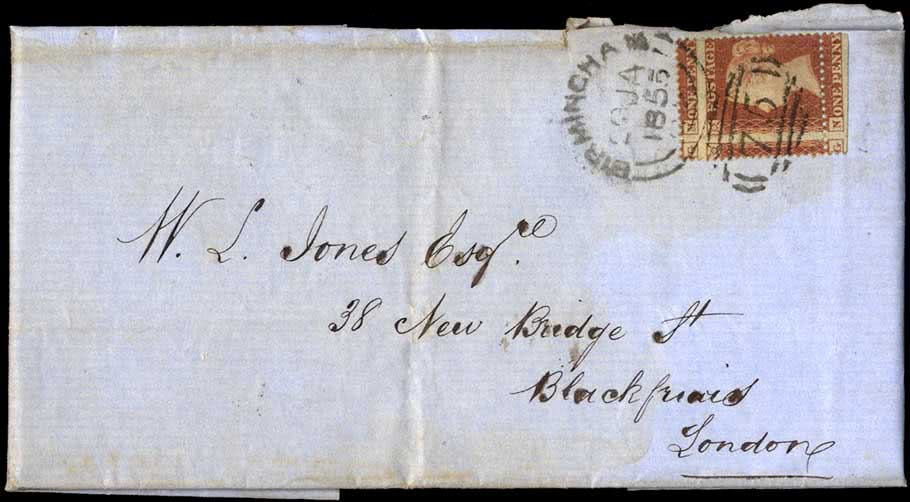 BIRMINGHAM
JA
1855
75
ONE PENNY
POSTAGE
ONE PENNY
N
G
N
G
W. L. Jones Esqre.
38 New Bridge St
Blackfriars
London